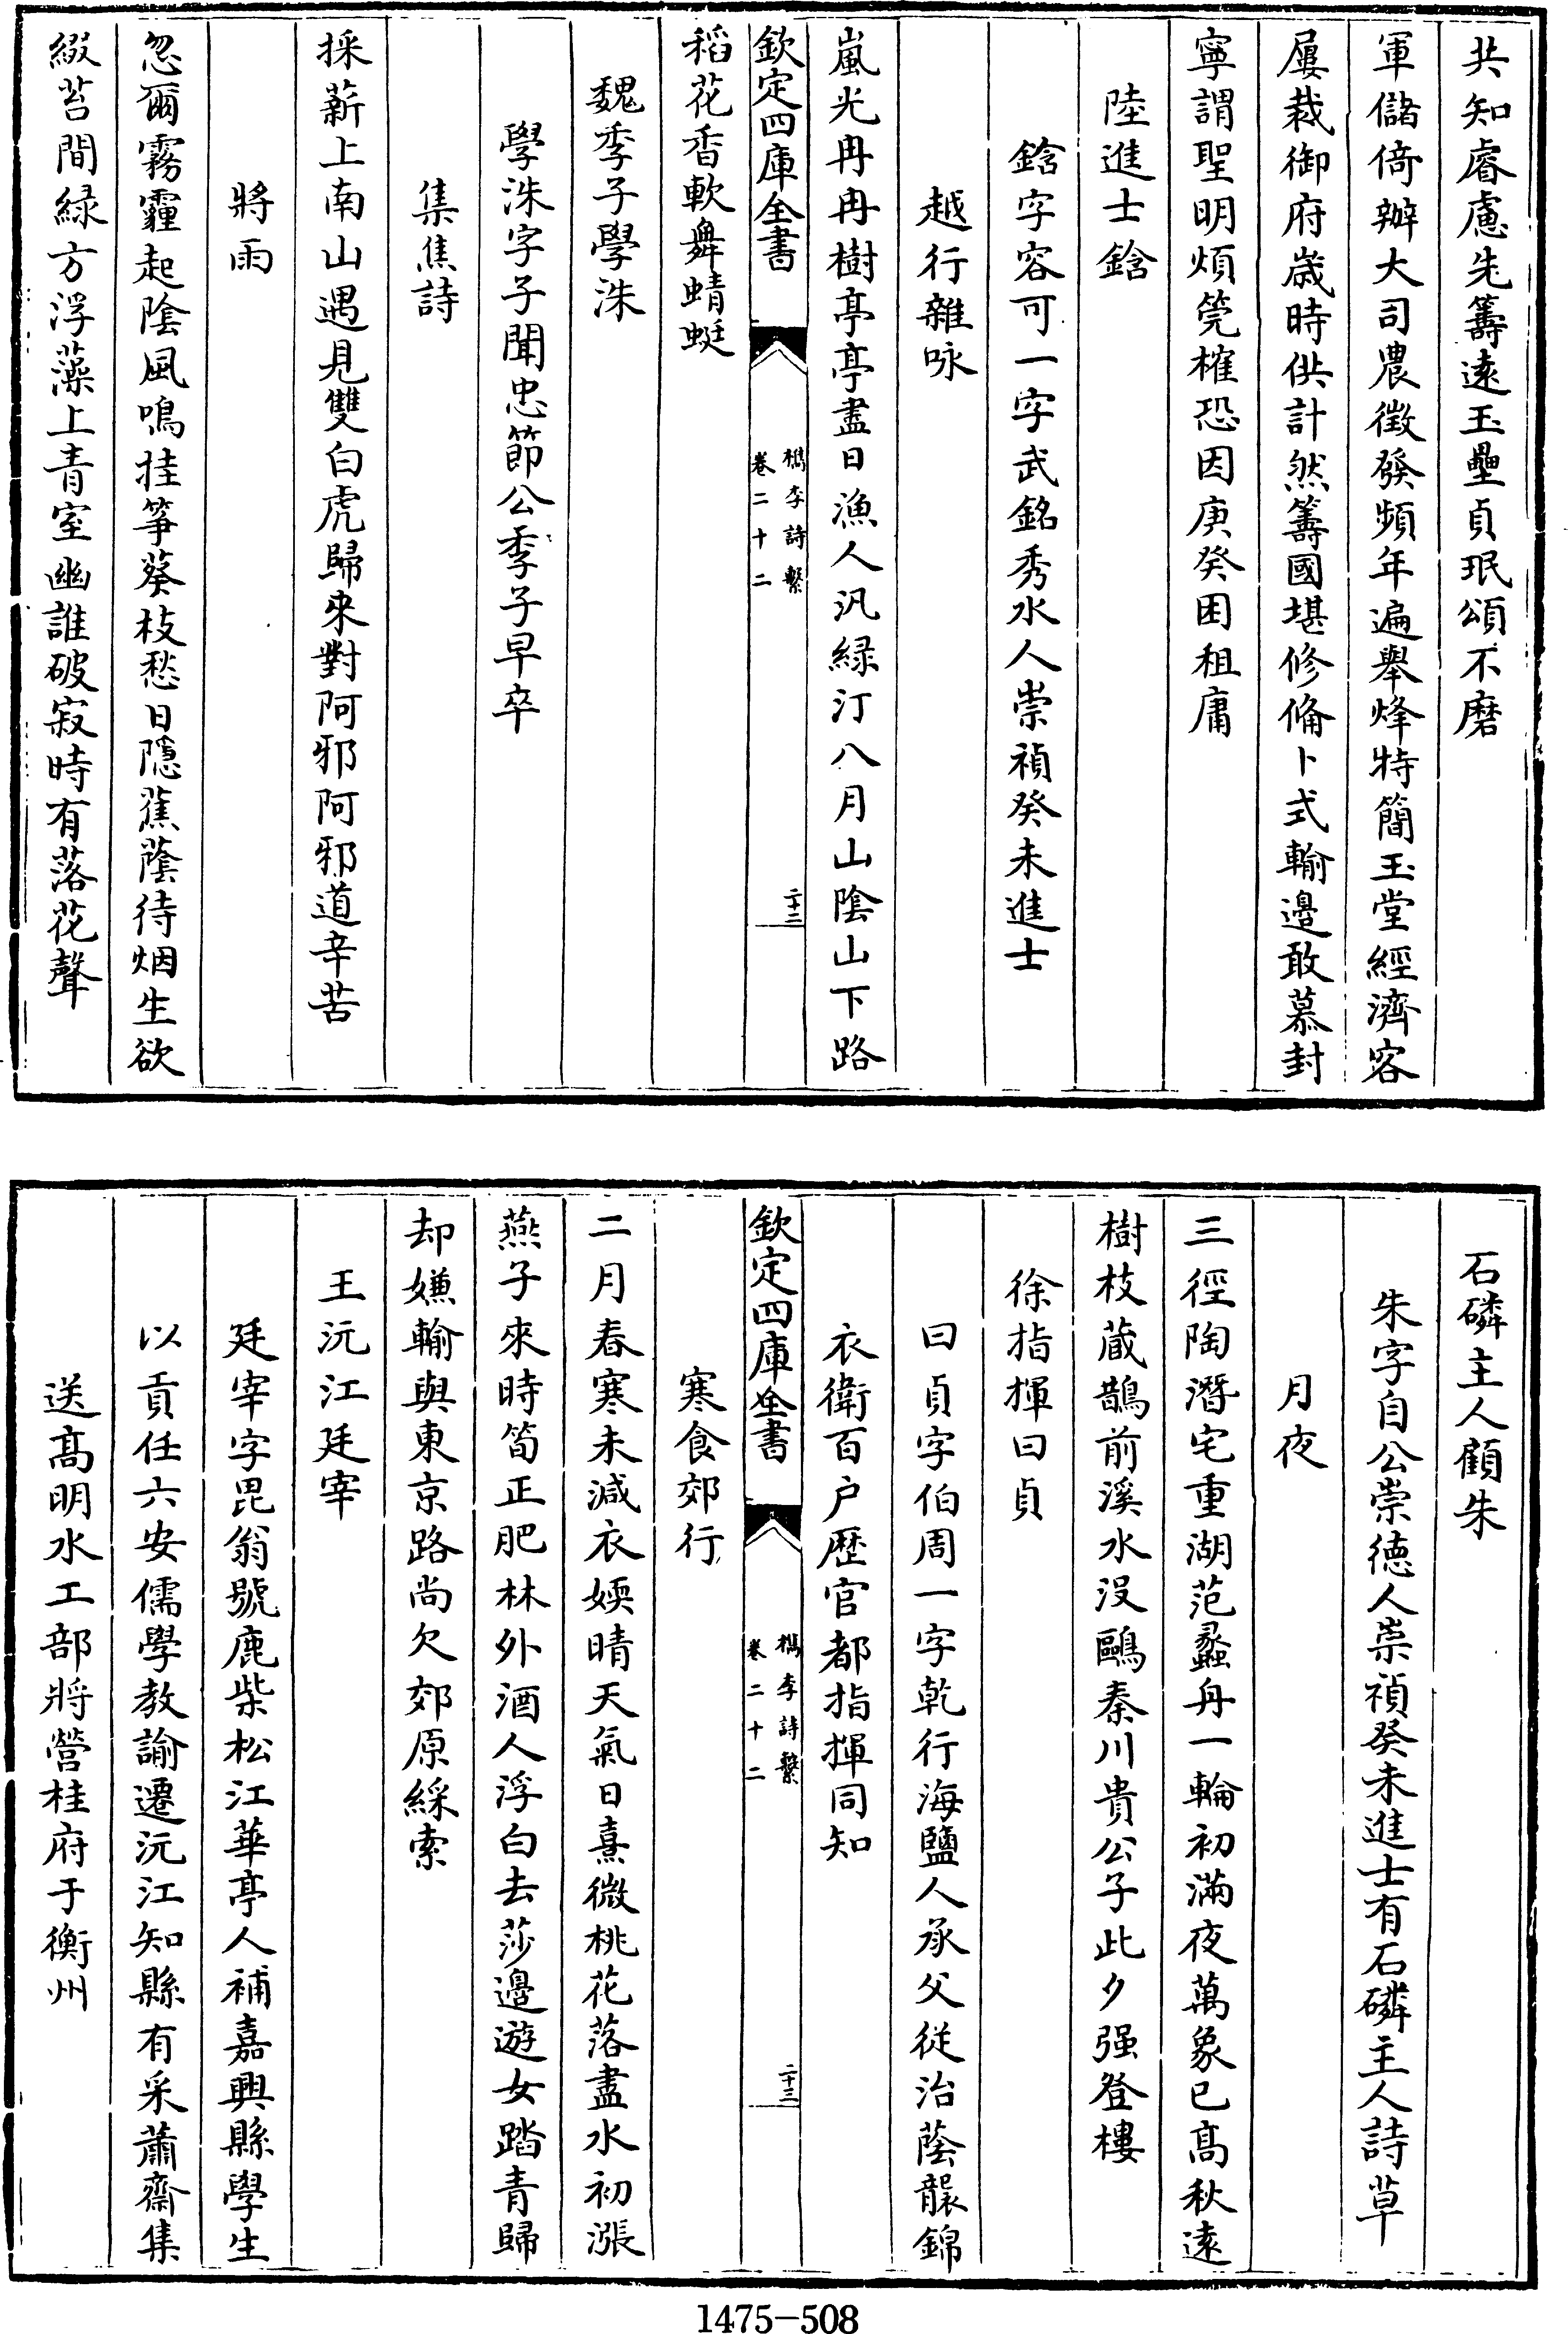 共知睿慮先籌遠玉壘貞珉頌不磨
軍儲倚辦大司農徵發頻年遍舉烽特簡玉堂經濟容
屢裁御府歳時供計然籌國堪修備卜式輸邊敢慕封
寧謂聖明煩筦榷恐因庚癸困租庸
陸進士鋡
鋡字容可一字武銘秀水人崇禎癸未進士
越行雜咏
嵐光冉冉樹亭亭盡日漁人汎緑汀八月山陰山下路
欽定四庫全書
檇李詩繫
卷二十二
二十二
稻花香軟舞蜻蜓
魏季子學洙
學洙字子聞忠節公季子早卒
集焦詩
採薪上南山遇見雙白虎歸來對阿邪阿邪道辛苦
將雨
忽爾霧霾起陰風鳴挂箏葵枝愁日隱蕉蔭待烟生欲
綴苔間緑方浮藻上青室幽誰破寂時有落花聲
石磷主人顧朱
朱字自公崇徳人崇禎癸未進士有石磷主人詩草
月夜
三徑陶潛宅重湖范蠡舟一輪初滿夜萬象已髙秋遠
樹枝蔵鵲前溪水没鷗秦川貴公子此夕强登樓
徐指揮曰貞
曰貞字伯周一字乾行海鹽人承父從治蔭襲錦
衣衛百户歴官都指揮同知
欽定四庫全書
檇李詩繫
卷二十二
二十三
寒食郊行
二月春寒未減衣㛂晴天氣日熹微桃花落盡水初漲
燕子來時筍正肥林外酒人浮白去莎邉遊女踏青歸
却嫌輸與東京路尚欠郊原綵索
王沅江廷宰
廷宰字毘翁號鹿柴松江華亭人補嘉興縣學生
以貢任六安儒學教諭遷沅江知縣有采蕭齋集
送髙明水工部將營桂府于衡州
1475-508